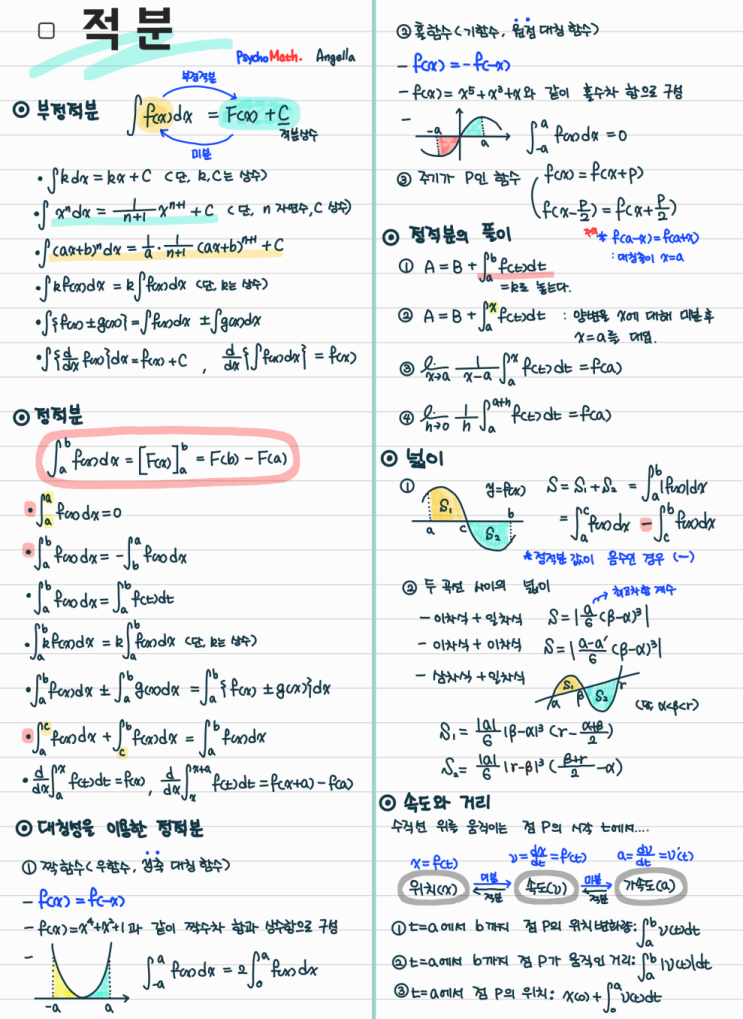 적분
PsychoMath. Angella
⊙ 부정적분
부정적분
∫f(x)dx = F(x) + C
적분상수
미분
• ∫kdx = kx + C (단, k, C는 상수)
• ∫xⁿdx = 1/(n+1) xⁿ⁺¹ + C (단, n 자연수, C 상수)
• ∫(ax+b)ⁿdx = 1/a · 1/(n+1) (ax+b)ⁿ⁺¹ + C
• ∫kf(x)dx = k∫f(x)dx (단, k는 상수)
• ∫{f(x) ± g(x)} = ∫f(x)dx ± ∫g(x)dx
• ∫{d/dx f(x)}dx = f(x) + C , d/dx{∫f(x)dx} = f(x)
⊙ 정적분
∫ₐᵇ f(x)dx = [F(x)]ₐᵇ = F(b) - F(a)
• ∫ₐᵃ f(x)dx = 0
• ∫ₐᵇ f(x)dx = -∫_b^a f(x)dx
• ∫ₐᵇ f(x)dx = ∫ₐᵇ f(t)dt
• ∫ₐᵇ kf(x)dx = k∫ₐᵇ f(x)dx (단, k는 상수)
• ∫ₐᵇ f(x)dx ± ∫ₐᵇ g(x)dx = ∫ₐᵇ {f(x) ± g(x)}dx
• ∫_a^c f(x)dx + ∫_c^b f(x)dx = ∫_a^b f(x)dx
• d/dx ∫_a^x f(t)dt = f(x), d/dx ∫_x^(x+a) f(t)dt = f(x+a) - f(x)
⊙ 대칭성을 이용한 정적분
① 짝함수(우함수, y축 대칭함수)
- f(x) = f(-x)
- f(x) = x⁴+x²+1과 같이 짝수차 항과 상수항으로 구성
- ∫_-a^a f(x)dx = 2∫_0^a f(x)dx
-a a
② 홀함수(기함수, 원점 대칭 함수)
- f(x) = -f(-x)
- f(x) = x⁵ + x³ + x와 같이 홀수차 항으로 구성
- -a a ∫_-a^a f(x)dx = 0
③ 주기가 P인 함수 f(x) = f(x+p)
f(x-p/2) = f(x+p/2)
⊙ 정적분의 풀이
* f(a-x) = f(a+x)
: 대칭축이 x=a
① A = B + ∫_a^b f(t)dt
= k로 놓는다.
② A = B + ∫_a^x f(t)dt : 양변을 x에 대해 미분 후
x=a를 대입.
③ lim x→a 1/(x-a) ∫_a^x f(t)dt = f(a)
④ lim h→0 1/h ∫_a^(a+h) f(t)dt = f(a)
⊙ 넓이
① y=f(x) S = S₁ + S₂ = ∫_a^b |f(x)|dx
S₁ a c b S₂
= ∫_a^c f(x)dx - ∫_c^b f(x)dx
* 정적분 값이 음수인 경우 (-)
② 두 곡선 사이의 넓이
최고차항 계수
- 이차식 + 일차식 S = |a/6 (β-α)³|
- 이차식 + 이차식 S = |(a-a′)/6 (β-α)³|
- 삼차식 + 일차식
S₁ S₂ α β r (단, α<β<r)
S₁ = |a|/6 |β-α|³ (r - (α+β)/2)
S₂ = |a|/6 |r-β|³ ((β+r)/2 - α)
⊙ 속도와 거리
수직선 위를 움직이는 점 P의 시각 t에서....
x=f(t) v = dx/dt = f′(t) a = dv/dt = v′(t)
위치(x) 미분 적분 속도(v) 미분 적분 가속도(a)
① t=a에서 b까지 점 P의 위치변화량: ∫_a^b v(t)dt
② t=a에서 b까지 점 P가 움직인 거리: ∫_a^b |v(t)|dt
③ t=a에서 점 P의 위치: x(0) + ∫_0^a v(t)dt